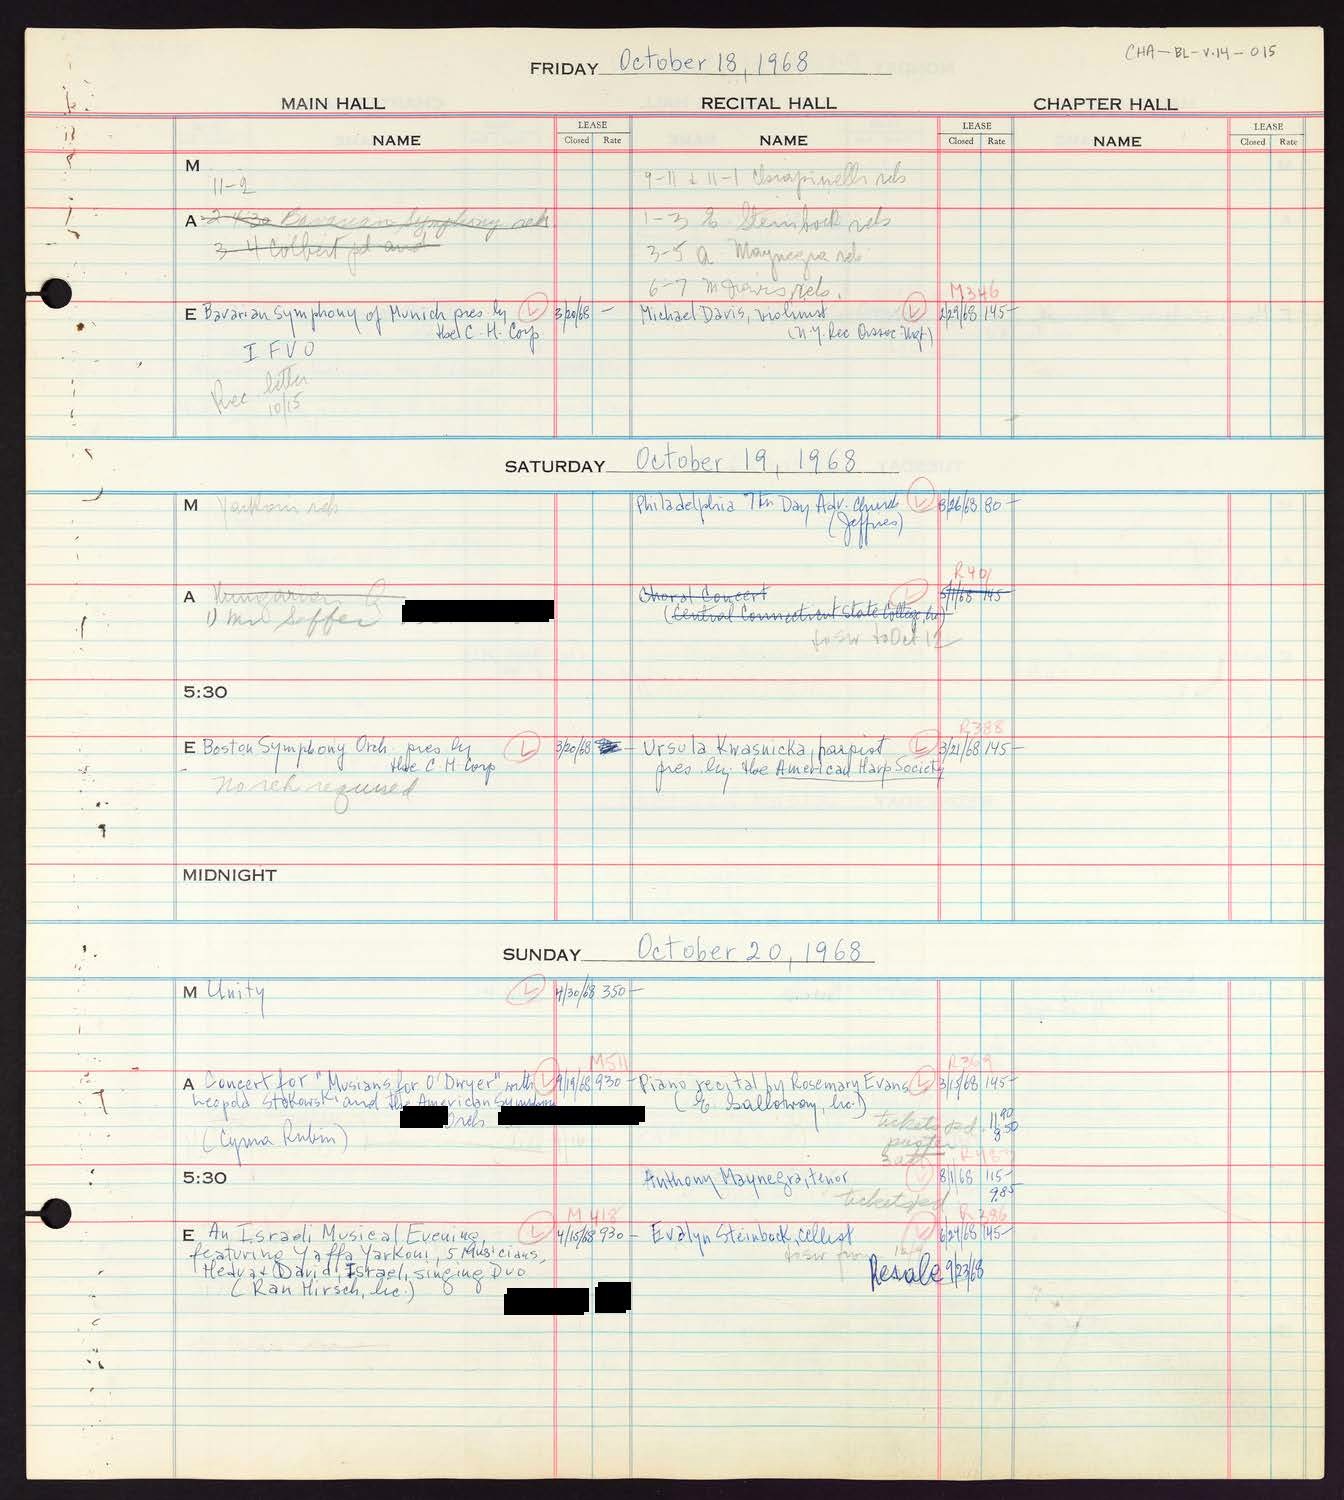 CHA-BL-V.14-015
FRIDAY October 18, 1968
MAIN HALL RECITAL HALL CHAPTER HALL
NAME LEASE Closed Rate NAME LEASE Closed Rate NAME LEASE Closed Rate
M
11-2
9-11 & 11-1 rehs
A 2-4:30 Bavarian Symphony reh
1-3 E Steinbock rehs
3-4 Colbert pd and
3-5 A Maynegra reh
6-7 M Davis rehs.
M346
E Bavarian Symphony of Munich pres. by L 3/20/68 —
the C. H. Corp
Michael Davis, violinist L 2/29/68 145—
(N.Y. Rec Assoc Mgt)
I F V O
Rec letter
10/15
SATURDAY October 19, 1968
M Yarkoni reh
Philadelphia 7th Day Adv. Church L 3/26/68 80—
(Jeffries)
R401
A Hungarian
1) Mr Seffer
Choral Concert 5/1/68 145
(Central Connecticut State College, Inc)
to Oct 12
5:30
R388
E Boston Symphony Orch. pres by L 3/20/68 —
the C. H. Corp
Ursula Kwasnicka, harpist L 3/21/68 145—
pres. by the American Harp Society
No reh required
MIDNIGHT
SUNDAY October 20, 1968
M Unity L 4/30/68 350—
M511
R369
A Concert for "Musians for O'Dwyer" with L 9/19/68 930—
Leopold Stokowski and the American Symphony
Orch
(Cyma Rubin)
Piano recital by Rosemary Evans L 3/15/68 145—
(E. Galloway, Inc.)
tickets pd. 11.90
8.50
5:30
Anthony Maynegra, tenor 8/1/68 115—
tickets pd 9.85
M 418
R 386
E An Israeli Musical Evening, L 4/15/68 930—
featuring Yaffa Yarkoni, 5 Musicians,
Hedva & David, Israel, singing Duo
(Ran Hirsch, Inc.)
Evalyn Steinbock, cellist L 6/24/68 145—
Resale 9/23/68